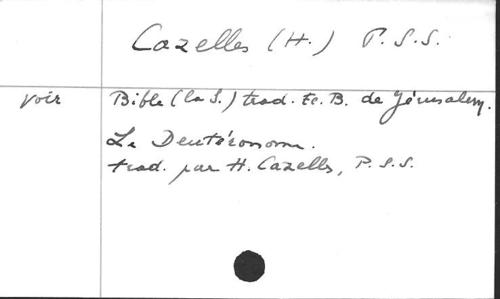 Cazelles (H.) P.S.S.
voir Bible (la S.) trad. Ec. B. de Jérusalem.
Le Deutéronome.
trad. par H. Cazelles, P.S.S.